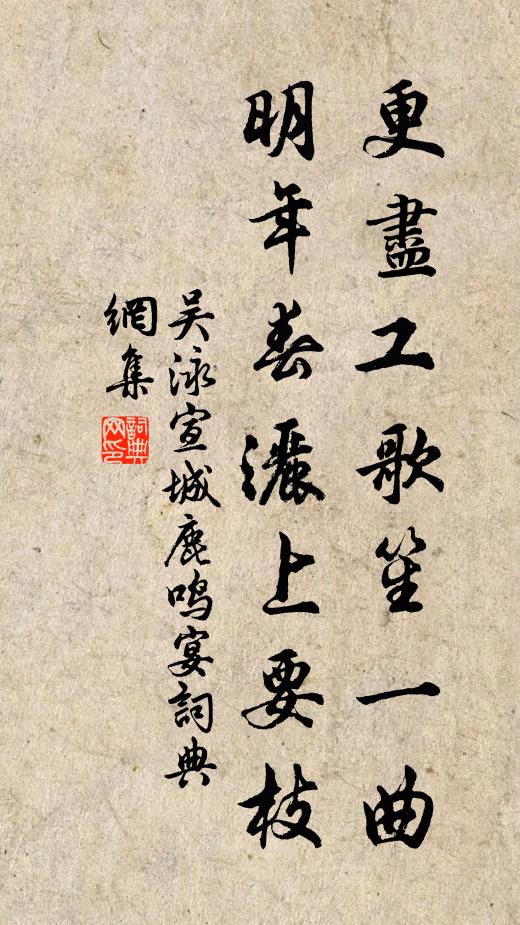 更盡工歌笙一曲
明年春灑上要枝
吴泳宣城鹿鸣宴詞典
網集
詞典网印